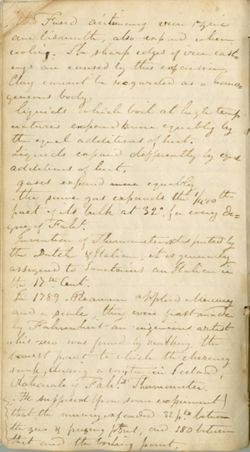 Fused antimony, iron, zinc
and bismuth, also expand when
cooling. The sharp edges of iron cast-
ings are caused by this expansion.
Clay cannot be regarded as a homo-
geneous body.
Liquids which boil at high temp
eratures expand more equably by
the equal additions of heat.
Liquids expand differently by equal
additions of heat.
gases expand more equably.
The same gas expands the 1/480 th
part of its bulk at 32°, for every de-
gree of Faht.
Invention of Thermometer disputed by
the Dutch & Italian, it is generally
assigned to Sanctorius an Italian in
the 17th Cent.
In 1789, applied Mercury
and a scale, they were first made
by Fahrenheit an ingenious artist
whose zero was found by marking the
lowest point to which the mercury
sunk, during a winter in Iceland,
Rationale of Faht's Thermometer.
He supposed (from some experiment)
that the mercury expanded 32 pts between
the zero & freezing point, and 180 between
that and the boiling point.